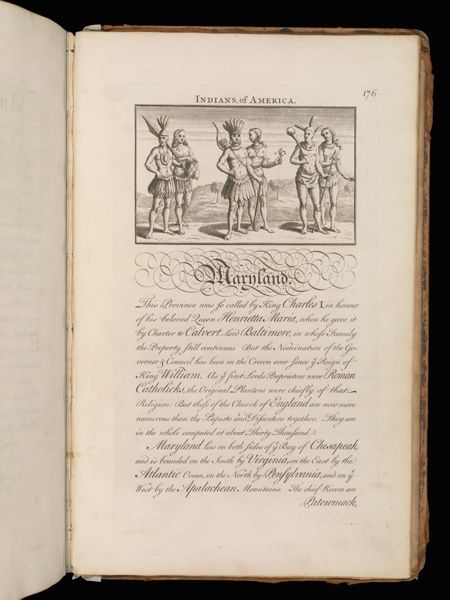 INDIANS, of AMERICA.
176
Maryland.
This Province was so called by King Charles I, in honour
of his beloved Queen Henrietta Maria, when he gave it
by Charter to Calvert Lord Baltimore, in whose Family
the Property still continues. But the Nomination of the Go-
vernor & Council has been in the Crown ever since yͤ Reign of
King William. As yͤ first Lords Proprietors were Roman
Catholicks, the Original Planters were chiefly of that
Religion: But those of the Church of England are now more
numerous than the Papists and Dissenters together. They are
in the whole computed at about Thirty Thousand.
Maryland lies on both sides of yͤ Bay of Chesapeak,
and is bounded on the South by Virginia, on the East by the
Atlantic Ocean, on the North by Pensylvania, and on yͤ
West by the Apalachean Mountains. The chief Rivers are
Patowmack,